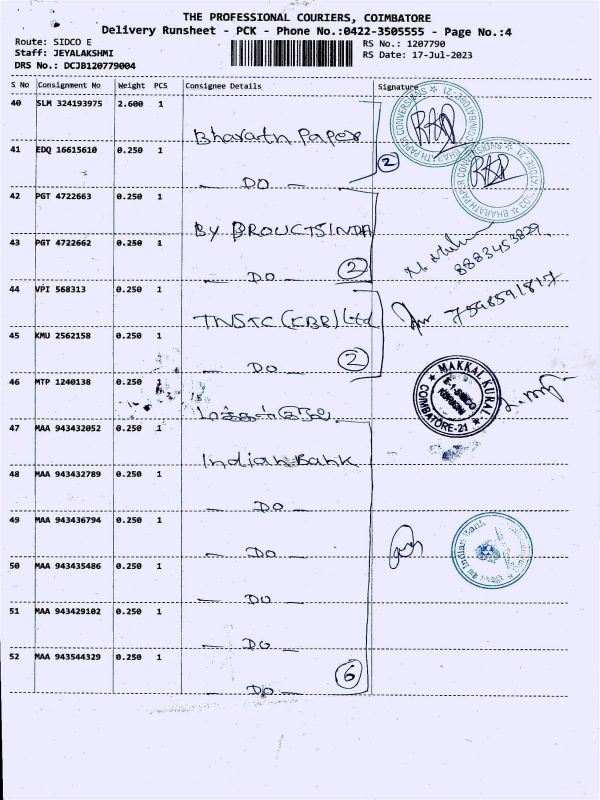 THE PROFESSIONAL COURIERS, COIMBATORE
Delivery Runsheet - PCK - Phone No.:0422-3505555 - Page No.:4
Route: SIDCO E
RS No.: 1207790
Staff: JEYALAKSHMI
RS Date: 17-Jul-2023
DRS No.: DCJB120779004
S No Consignment No Weight PCS Consignee Details Signature
40 SLM 324193975 2.600 1
Bharath Paper
41 EDQ 16615610 0.250 1
2
— DO —
42 PGT 4722663 0.250 1
By BROUCTSINDA
8883453829
43 PGT 4722662 0.250 1
— DO — 2
44 VPI 568313 0.250 1
TNSTC (CBE) Ltd
7598591817
45 KMU 2562158 0.250 1
— DO — 2
46 MTP 1240138 0.250 1
★ MAKKAL KURAL ★
COIMBATORE-21
மக்கள் குரல்
47 MAA 943432052 0.250 1
Indian Bank
48 MAA 943432789 0.250 1
— DO —
49 MAA 943436794 0.250 1
— DO —
Indian Bank
50 MAA 943435486 0.250 1
— DO —
51 MAA 943429102 0.250 1
— DO —
52 MAA 943544329 0.250 1
— DO — 6